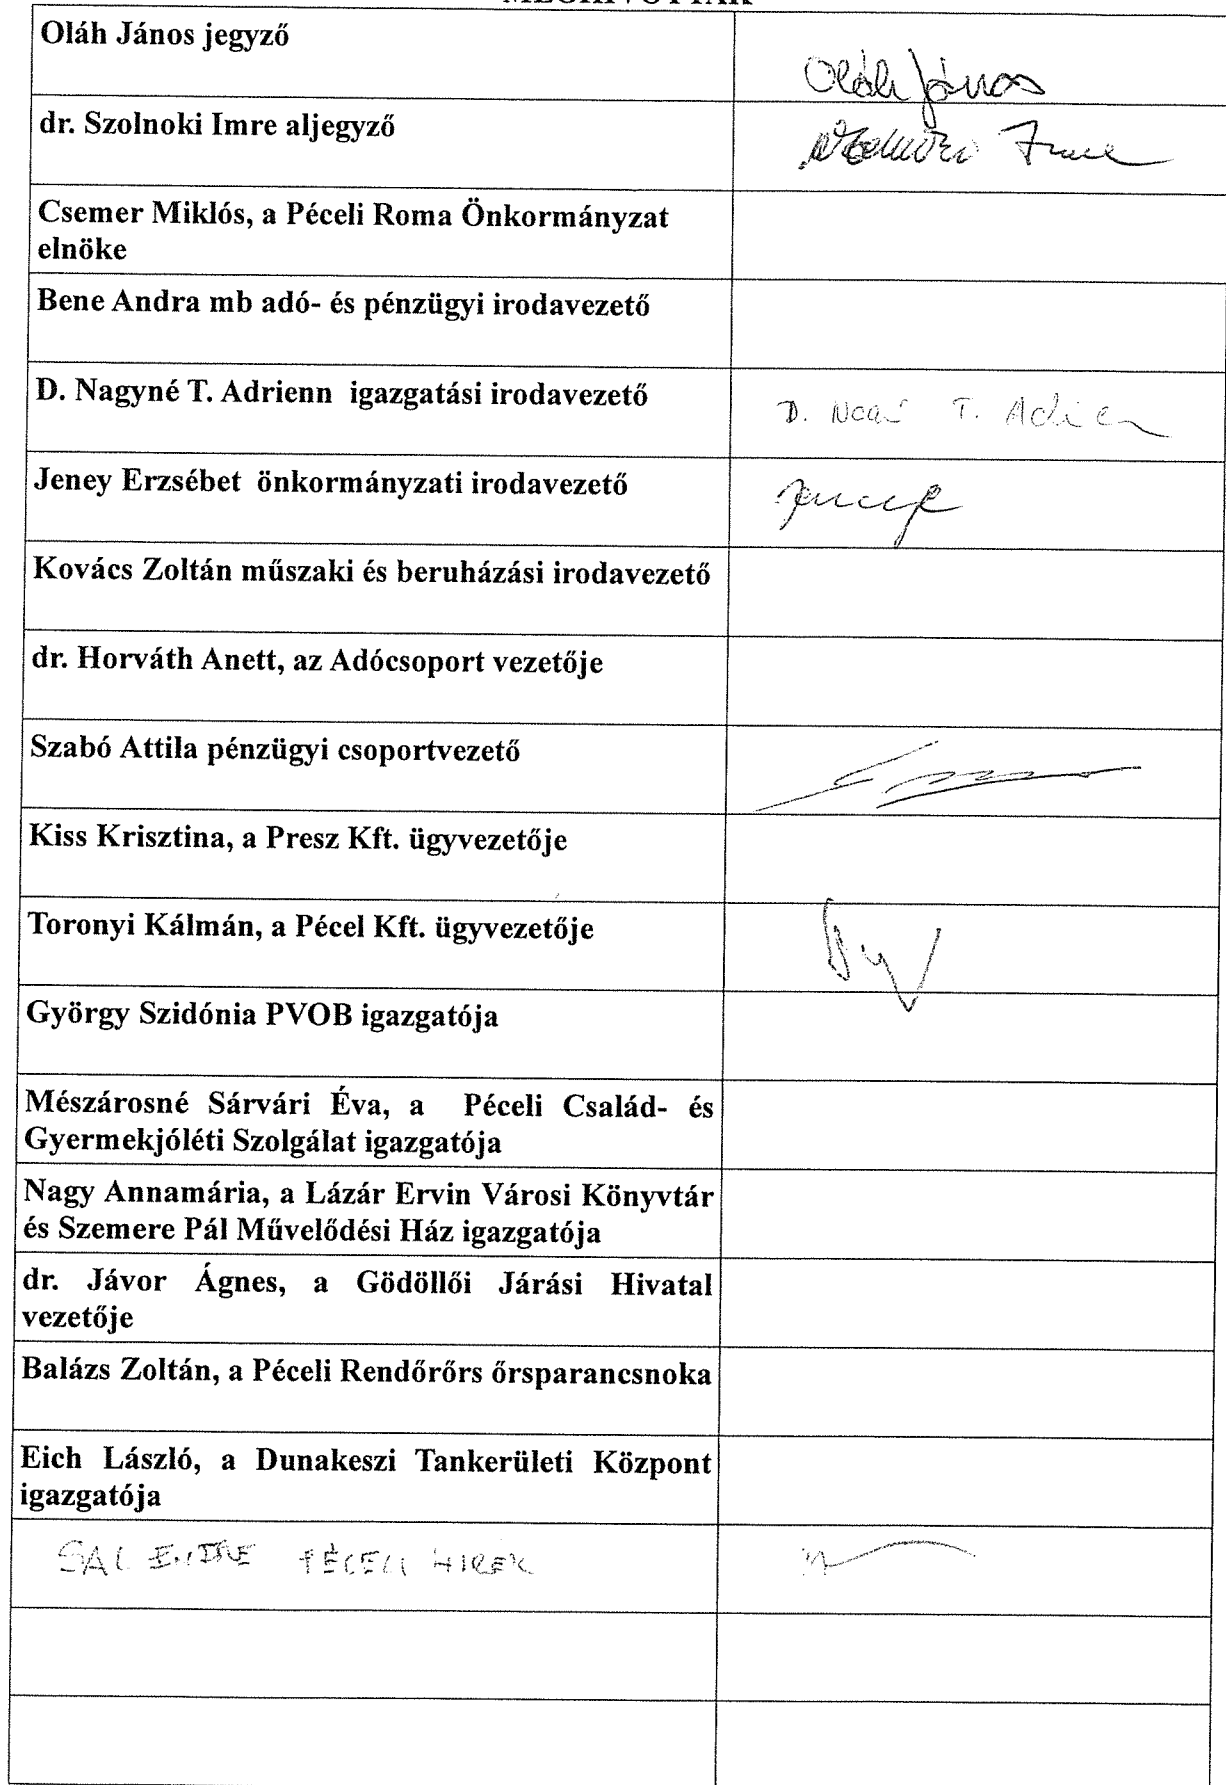 Oláh János jegyző
Oláh János
dr. Szolnoki Imre aljegyző
Imre
Csemer Miklós, a Péceli Roma Önkormányzat
elnöke
Bene Andra mb adó- és pénzügyi irodavezető
D. Nagyné T. Adrienn igazgatási irodavezető
D. T.
Jeney Erzsébet önkormányzati irodavezető
Kovács Zoltán műszaki és beruházási irodavezető
dr. Horváth Anett, az Adócsoport vezetője
Szabó Attila pénzügyi csoportvezető
Kiss Krisztina, a Presz Kft. ügyvezetője
Toronyi Kálmán, a Pécel Kft. ügyvezetője
György Szidónia PVOB igazgatója
Mészárosné Sárvári Éva, a Péceli Család- és
Gyermekjóléti Szolgálat igazgatója
Nagy Annamária, a Lázár Ervin Városi Könyvtár
és Szemere Pál Művelődési Ház igazgatója
dr. Jávor Ágnes, a Gödöllői Járási Hivatal
vezetője
Balázs Zoltán, a Péceli Rendőrőrs őrsparancsnoka
Eich László, a Dunakeszi Tankerületi Központ
igazgatója
PÉCELI HIREK